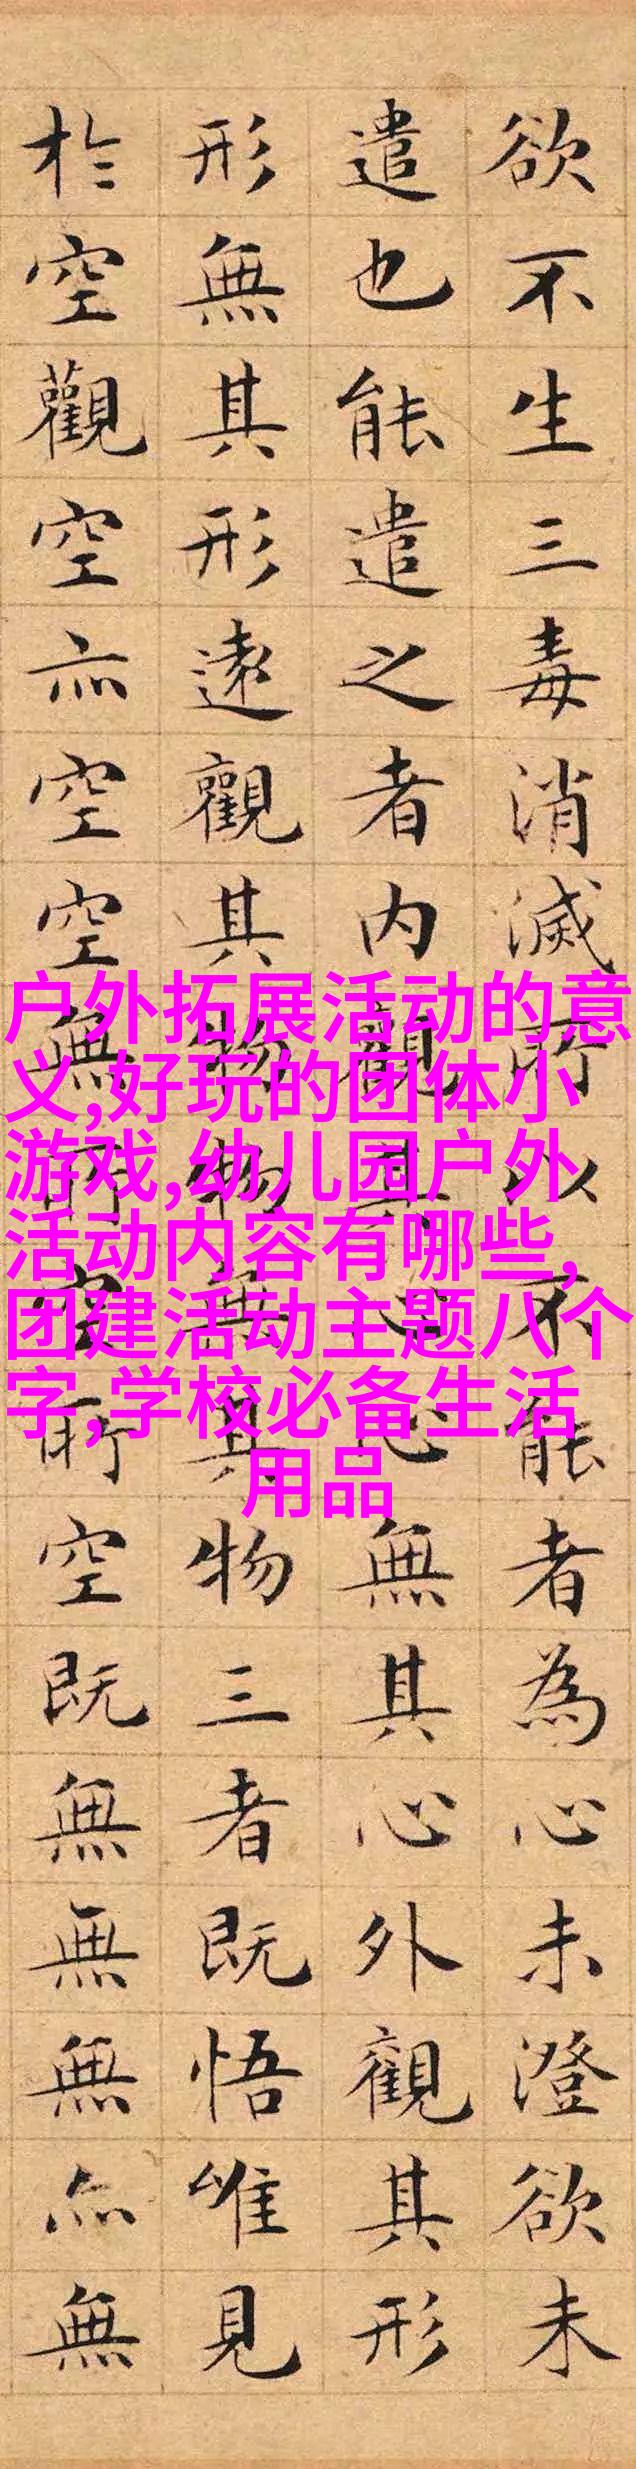 欲不生三毒消滅所以不能者為心未澄欲未
遣也能遣之者内觀其心心無其心外觀其形
形無其形遠觀其物物無其物三者既悟唯見
於空觀空亦空空無所空所空既無無無亦無
户外拓展活动的意
义,好玩的团体小
游戏,幼儿园户外
活动内容有哪些,
团建活动主题八个
字,学校必备生活
用品